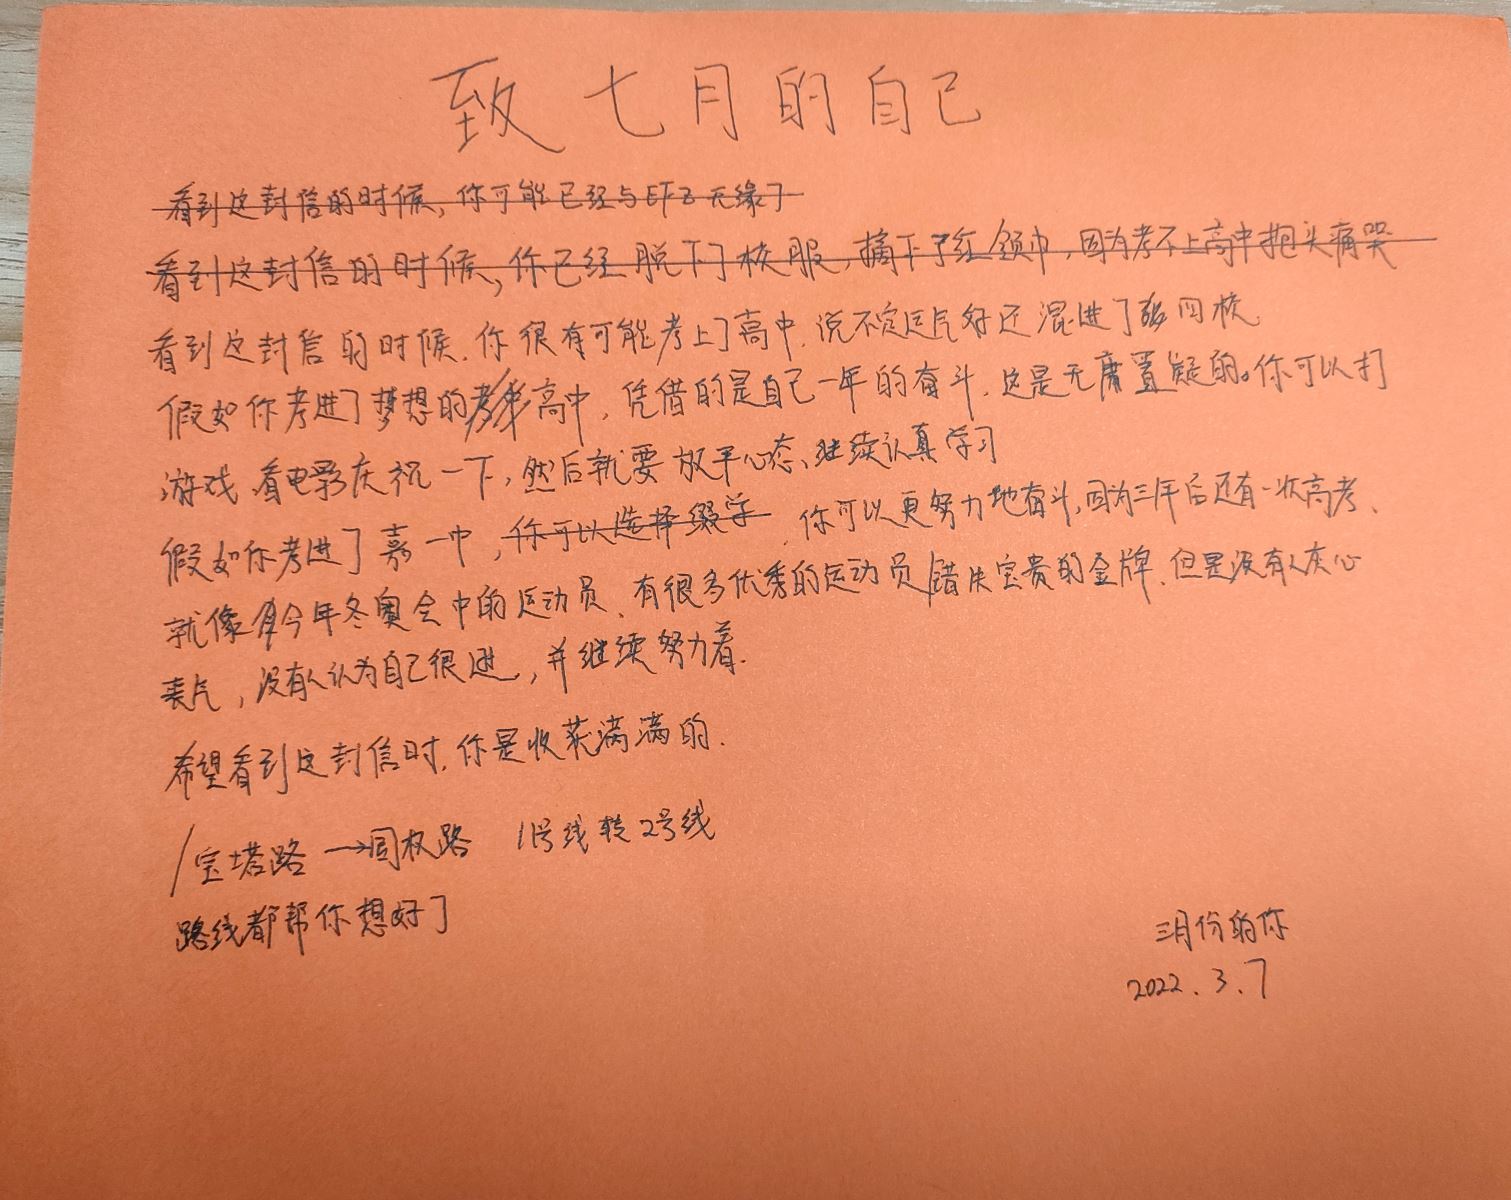 致七月的自己
看到这封信的时候,你可能已经与EFZ无缘了
看到这封信的时候,你已经脱下了校服,摘下了红领巾,因为考不上高中抱头痛哭
看到这封信的时候.你很有可能考上了高中.说不定运气好还混进了四校
假如你考进了梦想的高中,凭借的是自己一年的奋斗.这是无庸置疑的。你可以打
游戏、看电影庆祝一下,然后就要放平心态、继续认真学习
假如你考进了嘉一中,你可以选择缀学,你可以更努力地奋斗,因为三年后还有一次高考、
就像今年冬奥会中的运动员、有很多优秀的运动员错失宝贵的金牌.但是没有人灰心
丧气,没有人认为自己很逊,并继续努力着.
希望看到这封信时.你是收获满满的.
/宝塔路→同权路 11号线转2号线
路线都帮你想好了
三月份的你
2022.3.7